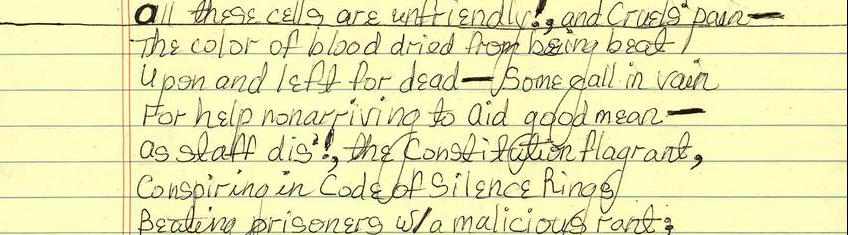 all these cells are unfriendly!, and Cruels' pain—
The color of blood dried from being beat
Upon and left for dead— Some call in vain
For help nonarriving to aid good mean—
as staff dis'!, the Constitution flagrant,
Conspiring in Code of Silence Rings
Beating prisoners w/a malicious rant;